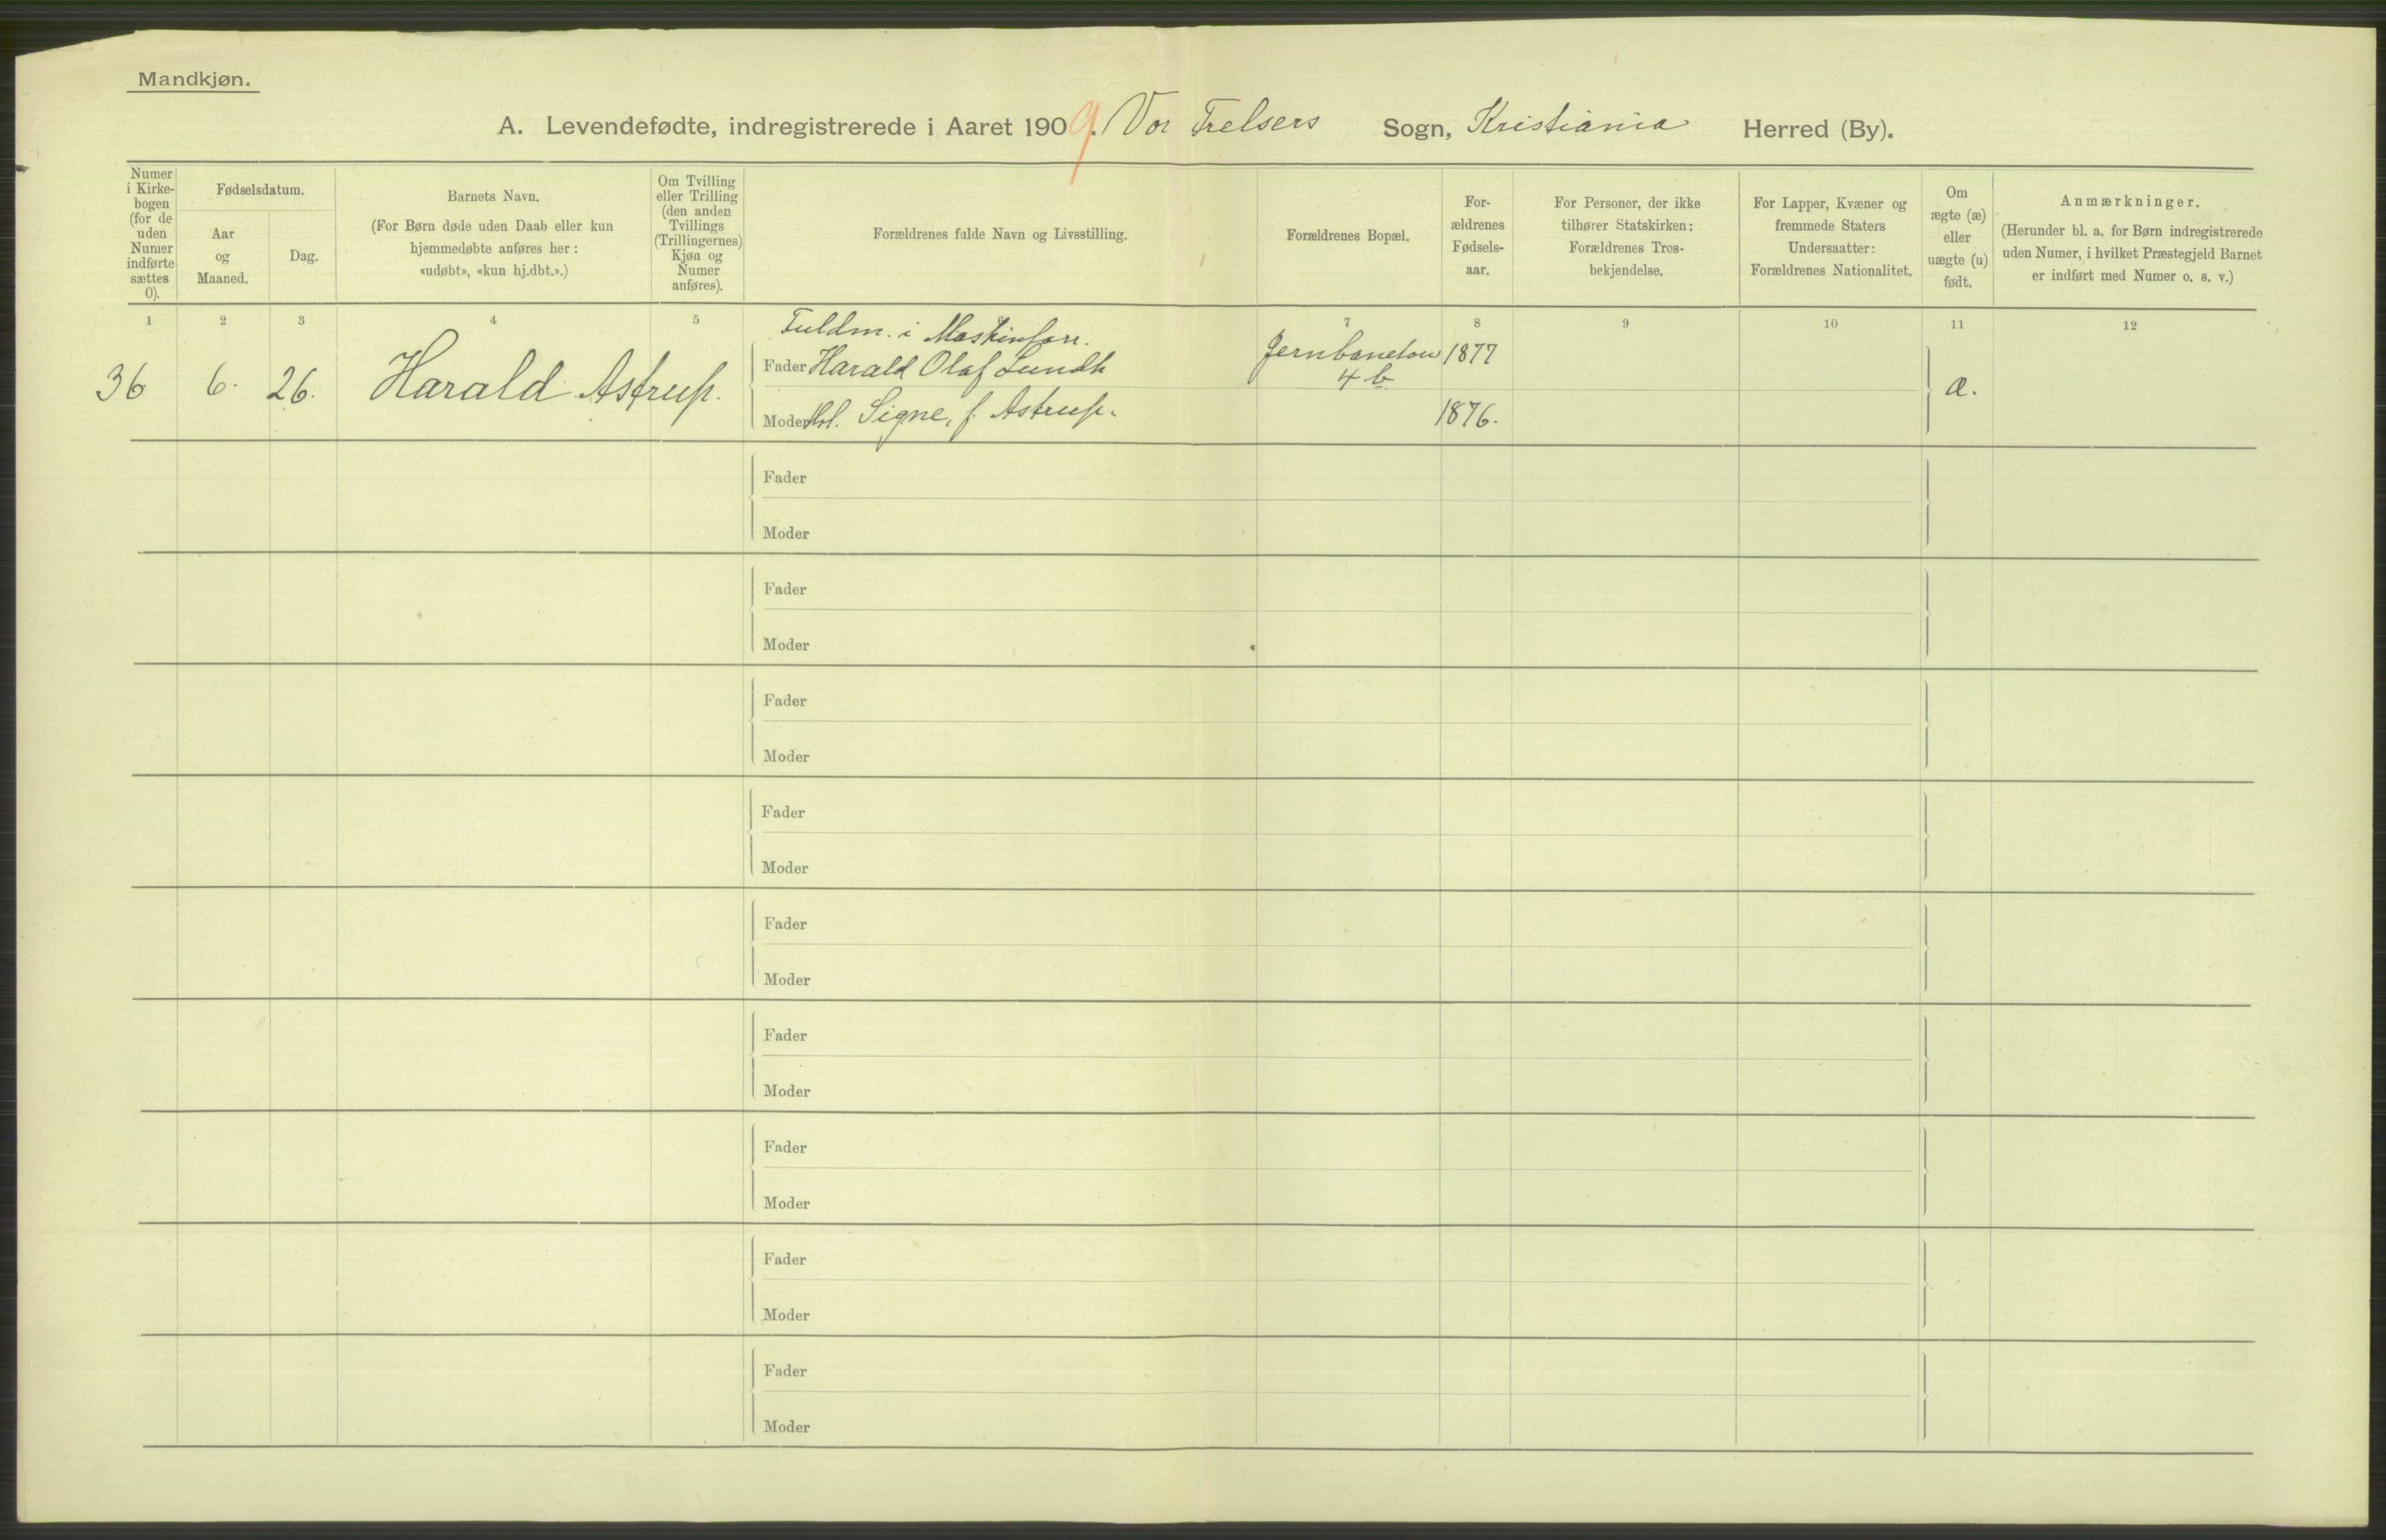 Mandkjøn.
A. Levendefødte, indregistrerede i Aaret 1909. Vor Frelsers Sogn, Kristiania Herred (By).
Numer
i Kirke-
bogen
(for de
uden
Numer
indførte
sættes
0).
Fødselsdatum.
Aar
og
Maaned.
Dag.
Barnets Navn.
(For Børn døde uden Daab eller kun
hjemmedøbte anføres her:
«udøbt», «kun hj.dbt.».)
Om Tvilling
eller Trilling
(den anden
Tvillings
(Trillingernes)
Kjøn og
Numer
anføres).
Forældrenes fulde Navn og Livsstilling.
Forældrenes Bopæl.
For-
ældrenes
Fødsels-
aar.
For Personer, der ikke
tilhører Statskirken:
Forældrenes Tros-
bekjendelse.
For Lapper, Kvæner og
fremmede Staters
Undersaatter:
Forældrenes Nationalitet.
Om
ægte (æ)
eller
uægte (u)
født.
Anmærkninger.
(Herunder bl. a. for Børn indregistrerede
uden Numer, i hvilket Præstegjeld Barnet
er indført med Numer o. s. v.)
1 2 3 4 5 7 8 9 10 11 12
Fuldm. i Maskinforr.
36 6. 26. Harald Astrup.
Fader Harald Olaf Lundh
Jernbanetorv 1877
4 b
Moder Signe, f. Astrup.
1876.
æ.
Fader
Moder
Fader
Moder
Fader
Moder
Fader
Moder
Fader
Moder
Fader
Moder
Fader
Moder
Fader
Moder
Fader
Moder